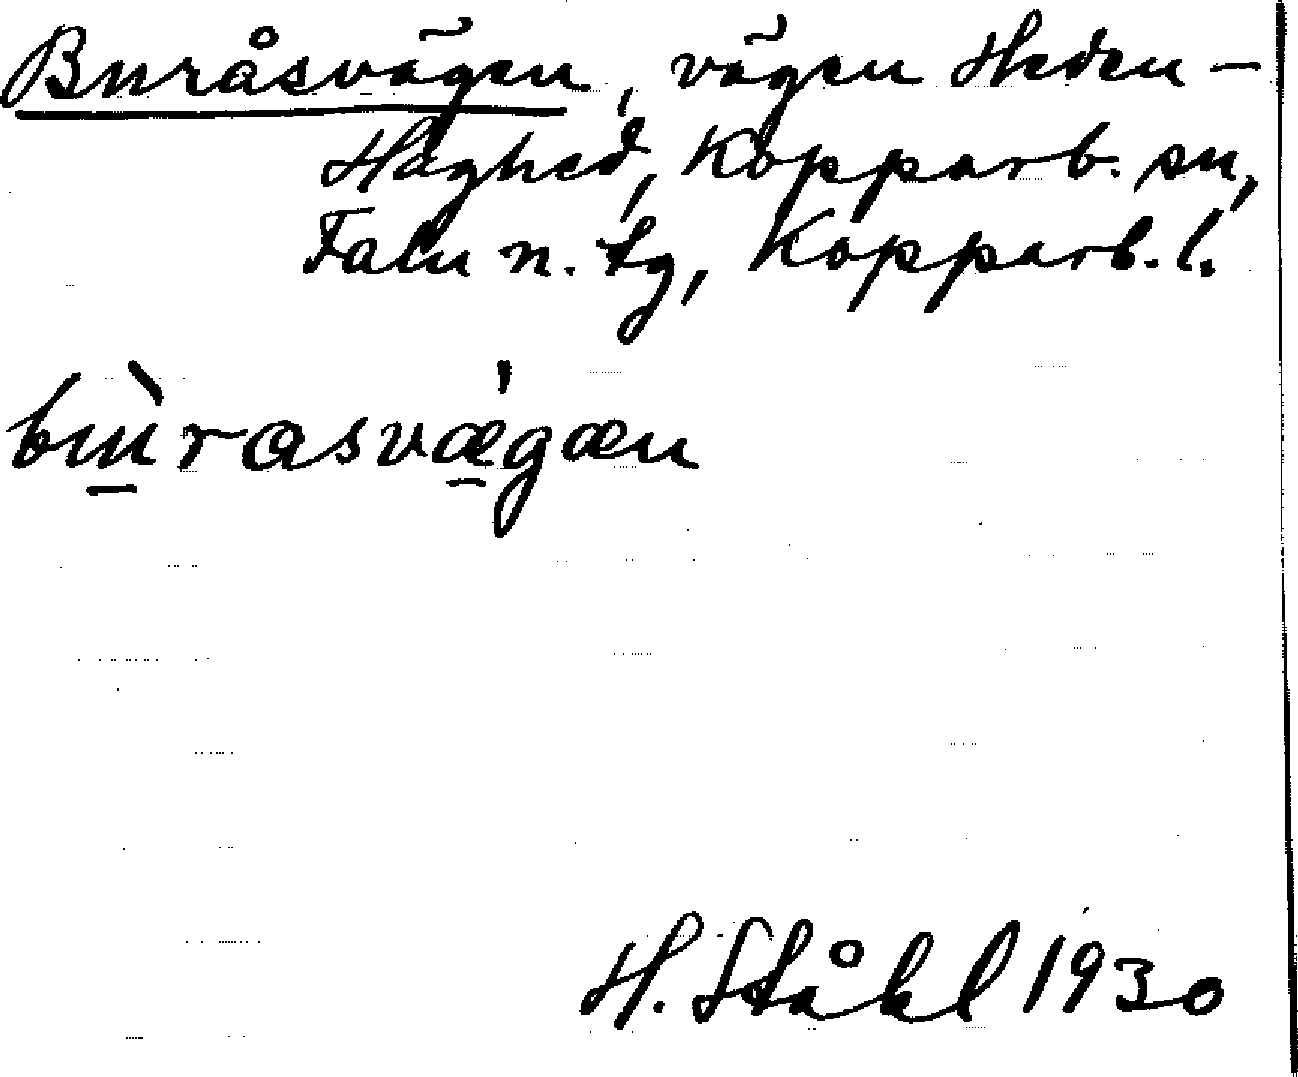 Buråsvägen, vägen Heden –
Haghed, Kopparb. sn,
Falu n. tg, Kopparb. l.
bùrasvǽgæn
H. Ståhl 1930